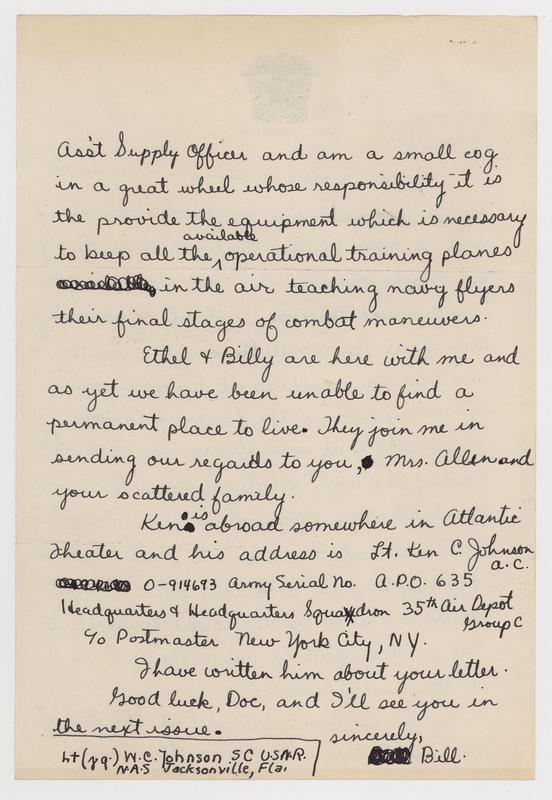 Ass't Supply Officer and am a small cog
in a great wheel whose responsibility it is
the provide the equipment which is necessary
available
to keep all the ‸ operational training planes
in the air teaching navy flyers
their final stages of combat maneuvers.
Ethel & Billy are here with me and
as yet we have been unable to find a
permanent place to live. They join me in
sending our regards to you, Mrs. Allen and
your scattered family.
Ken is abroad somewhere in Atlantic
theater and his address is Lt. Ken C. Johnson
A.C.
O-914693 Army Serial No. A.P.O. 635
Headquarters & Headquarters Squadron 35th Air Depot
Group C
c/o Postmaster New York City, N.Y.
I have written him about your letter.
Good luck, Doc, and I'll see you in
the next issue.
sincerely,
Bill.
Lt (jg.) W.C. Johnson SC U.S.N.R.
N.A.S Jacksonville, Fla.